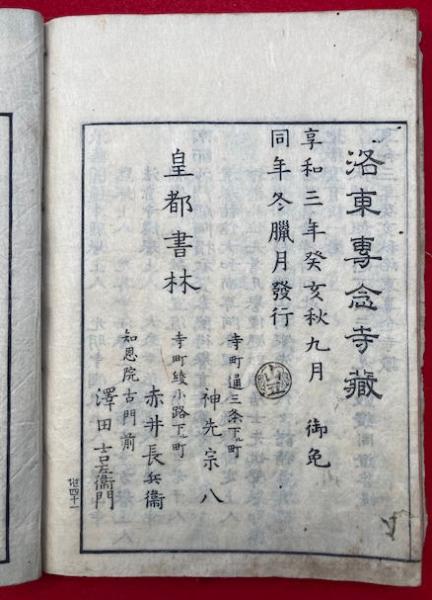 洛東專念寺藏
享和三年癸亥秋九月 御免
同年冬臘月發行
皇都書林
寺町通三条下ル町
神先宗八
寺町綾小路下ル町
赤井長兵衞
知恩院古門前
澤田吉左衞門
四十一